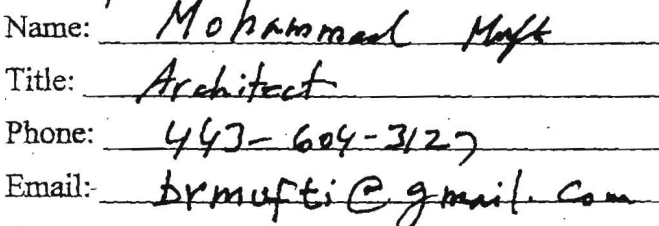 Name: Mohammad Mufti
Title: Architect
Phone: 443-604-3127
Email: brmufti@gmail.com